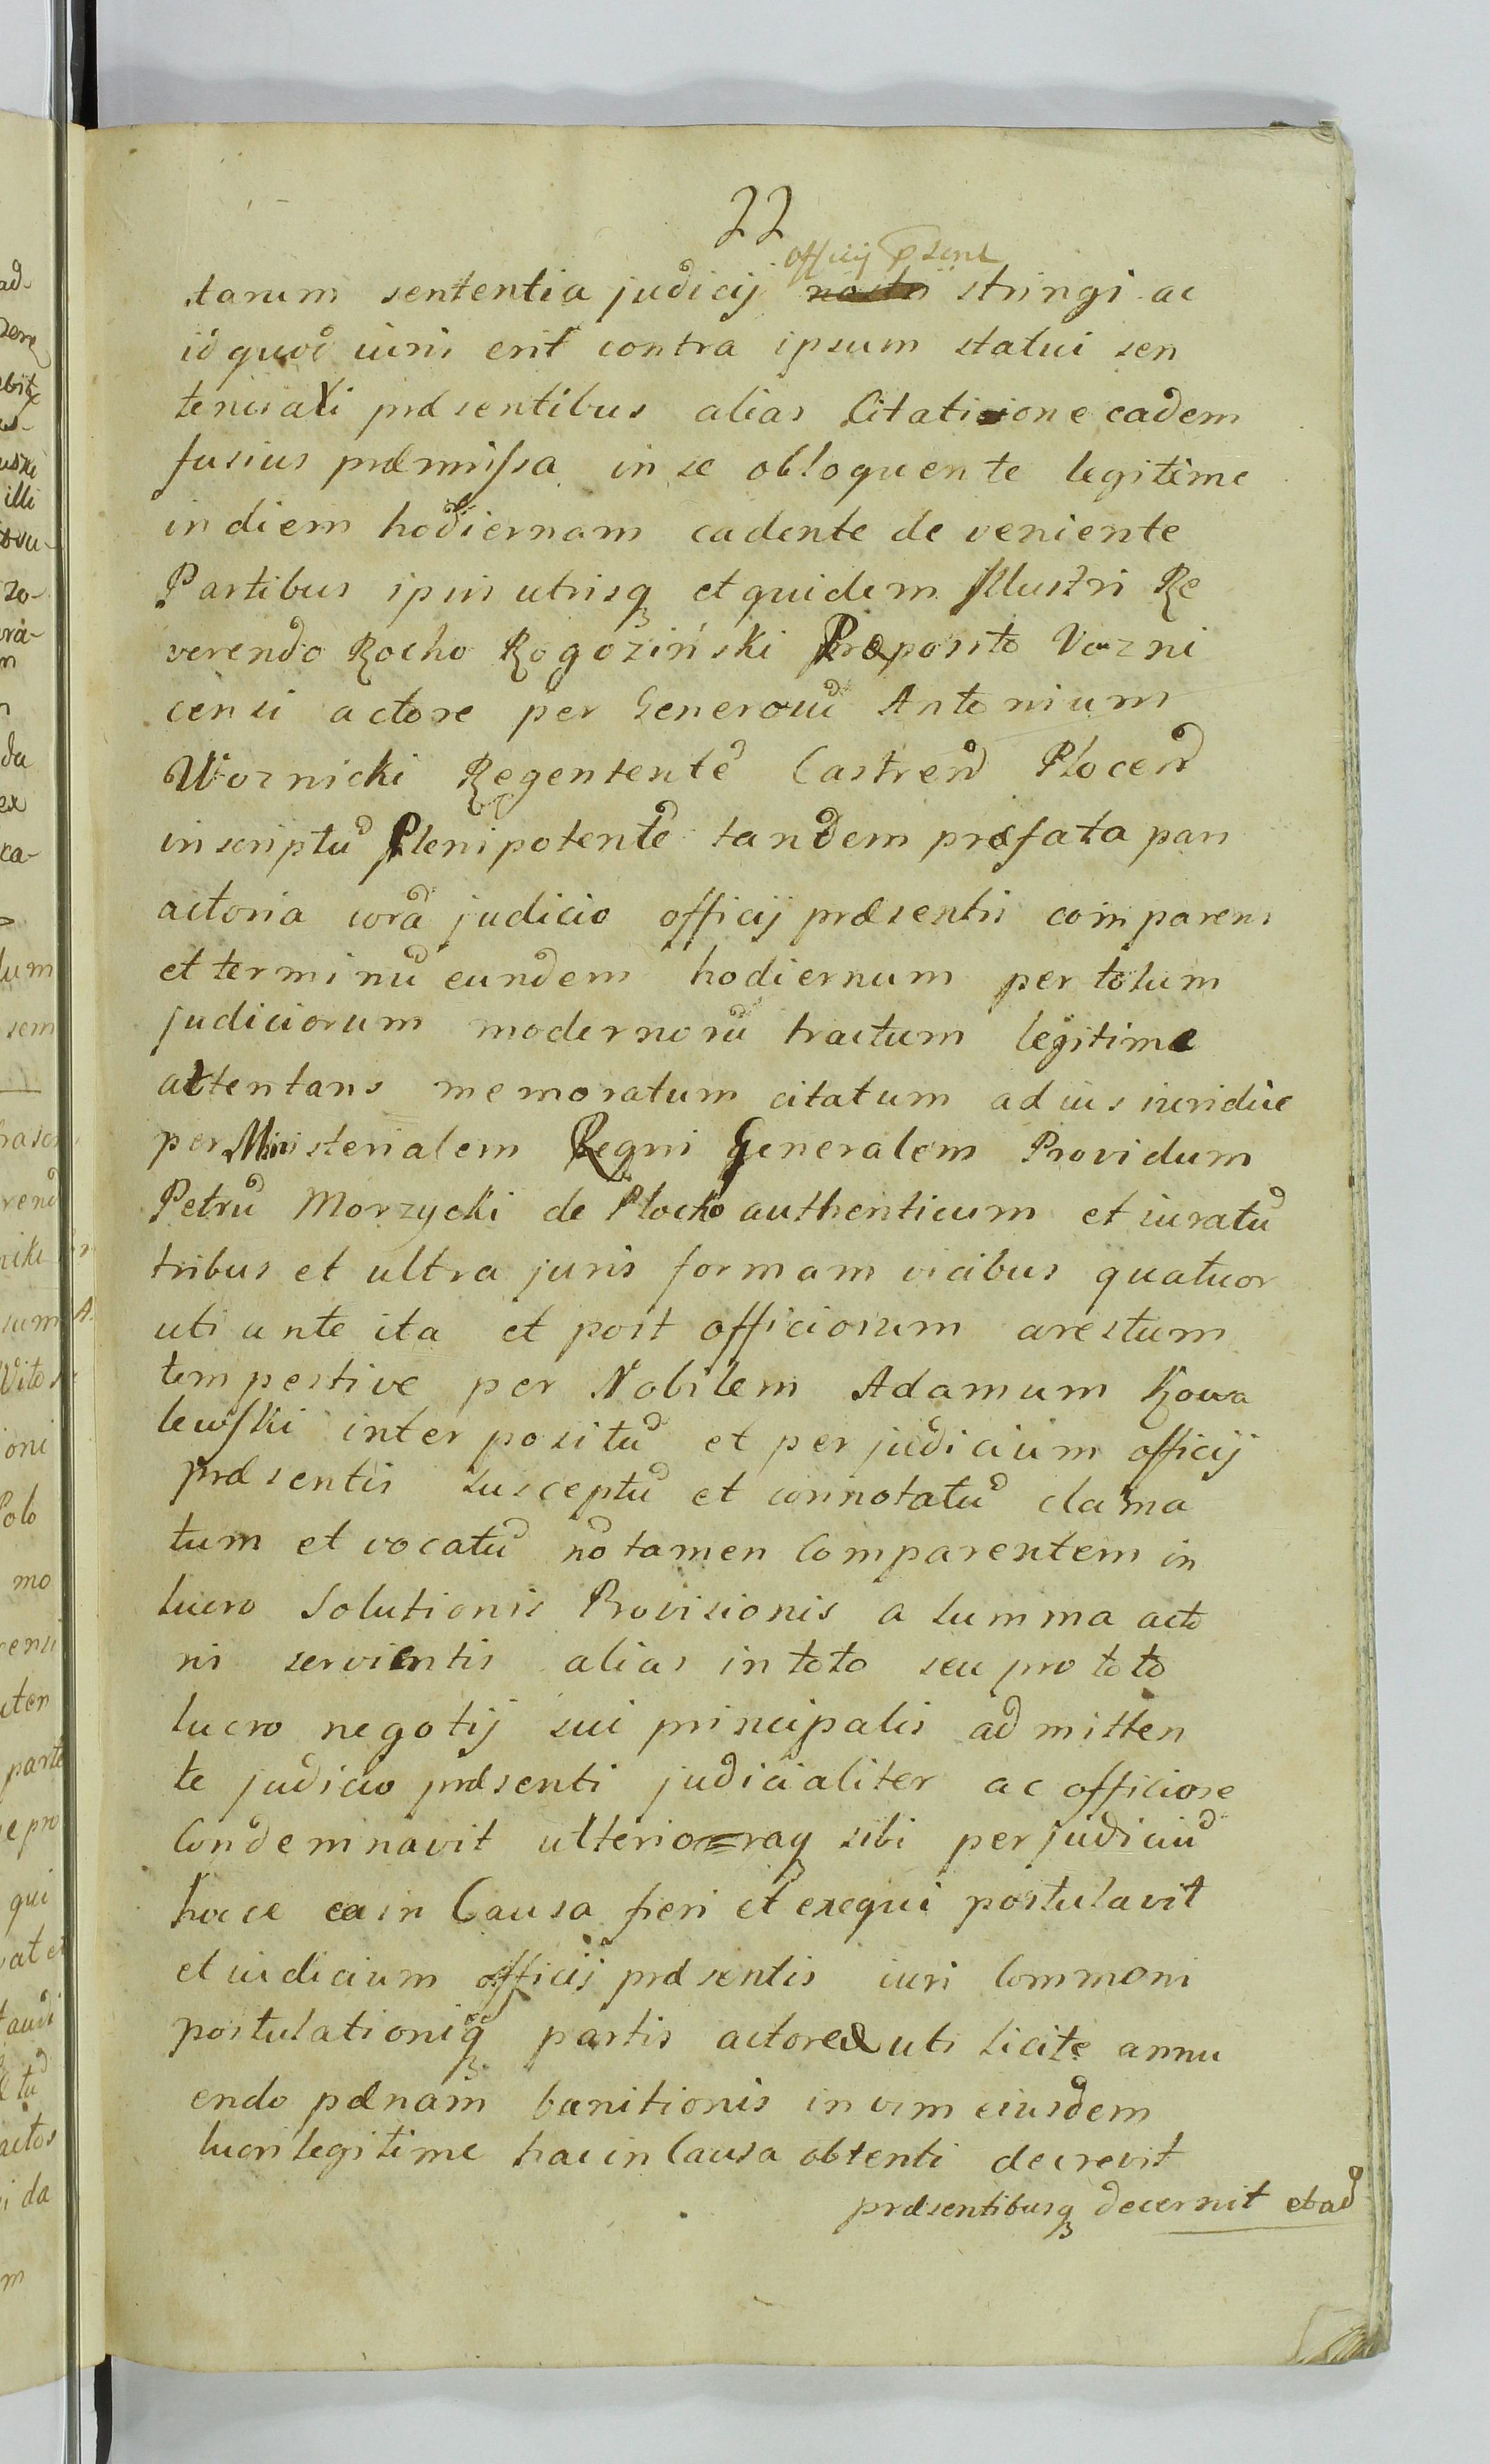 22
officij psent
tarum sententia judicij nostri stringi ac
id quod iuris erit contra ipsum statui sen
tenisaxi præsentibus alias Citatione eadem
fusius præmissa in se obloquente legitime
in diem hodiernam cadente de veniente
Partibus ipsis utrisq et quidem Illustri Re
verendo Rocho Rogoziński Præposito Vozni
censi actore per Generosũ Antonium
Woznicki Regententẽ Castren Plocen
inscriptũ Plenipotentẽ tandem præfata pars
actoria corã judicio officij præsentis comparens
et terminũ eundem hodiernum per totum
judiciorum modernorũ tractum legitime
attentans memoratum citatum ad ius iuridice
per Ministerialem Regni Generalem Providum
Petrũ Morzycki de Plocko authenticum et iuratũ
tribus et ultra juris formam vicibus quatuor
uti ante ita et post officiosum arestum
tempestive per Nobilem Adamum Kowa
lewski inter positũ et per judicium officij
præsentis susceptũ et connotatũ clama
tum et vocatũ nõ tamen Comparentem in
lucro Solutionis Provisionis a summa acto
ris servientis alias in toto seu pro toto
lucro negotij sui principalis ad mitten
te judicio præsenti judicialiter ac officiose
Condemnavit ulterioraq sibi per judiciũ
hocce ea in Causa fieri et exequi postulavit
et iudicium officij præsentis iuri Commoni
postulationiq partis actoreæ uti licite annu
endo pænam banitionis in vim eiusdem
lucri legitime hac in Causa obtenti decrevit
præsentibusq decernit et ad